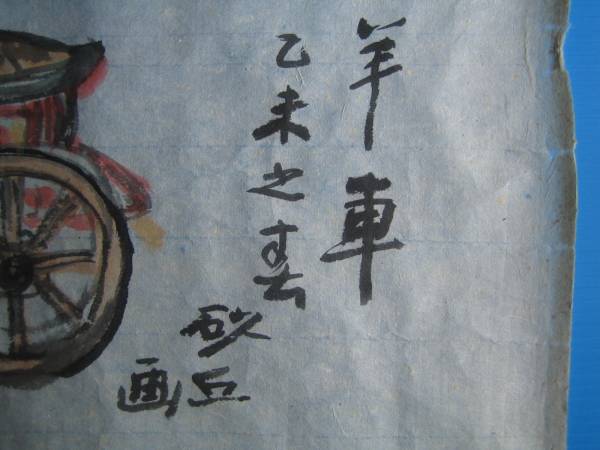 羊車
乙未之春
砂丘
画